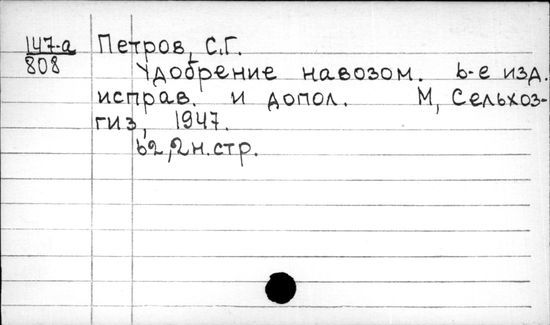 147-а
808
Петров, С.Г.
Удобрение навозом. 6-е изд.
исправ. и допол. М, Сельхоз-
гиз, 1947.
62, 2 н. стр.